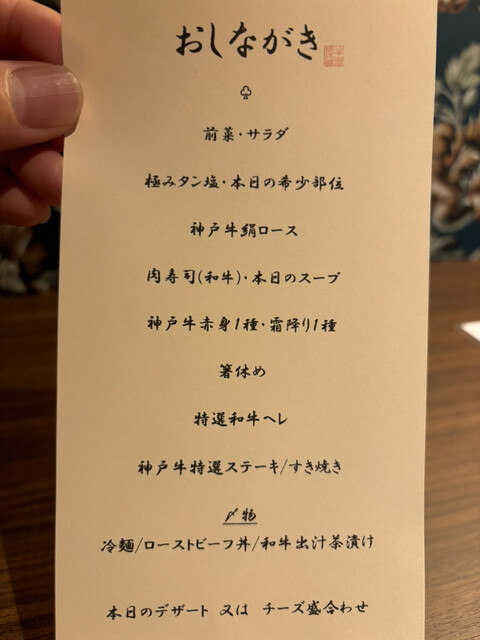 おしながき
前菜・サラダ
極みタン塩・本日の希少部位
神戸牛絹ロース
肉寿司(和牛)・本日のスープ
神戸牛赤身1種・霜降り1種
箸休め
特選和牛ヘレ
神戸牛特選ステーキ/すき焼き
〆物
冷麺/ローストビーフ丼/和牛出汁茶漬け
本日のデザート 又は チーズ盛合わせ